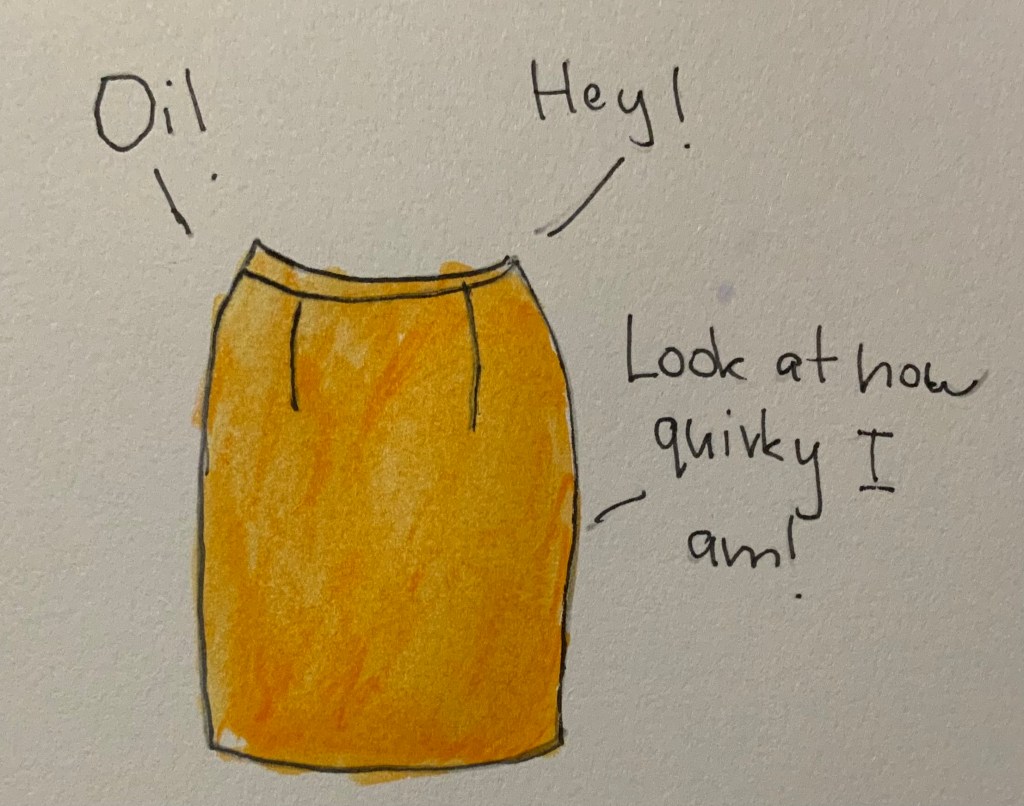 Oi!
Hey!
Look at how
quirky I
am!